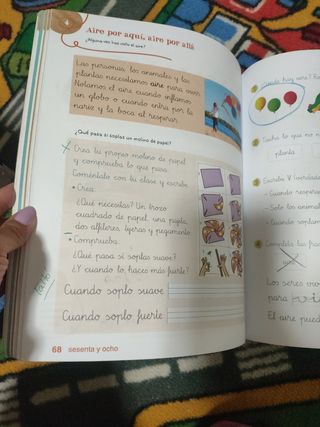 Aire por aquí, aire por allá
¿Alguna vez has visto el aire?
Las personas, los animales y las
plantas necesitamos aire para vivir.
Notamos el aire cuando inflamos
un globo o cuando entra por la
nariz y la boca al respirar.
¿Qué pasa si soplas un molino de papel?
Crea tu propio molino de papel
y comprueba lo que pasa.
Coméntalo con tu clase y escribe.
• Crea.
¿Qué necesitas? Un trozo
cuadrado de papel, una pajita,
dos alfileres, tijeras y pegamento.
• Comprueba.
¿Qué pasa si soplas suave?
¿Y cuando lo haces más fuerte?
Cuando soplo suave
Cuando soplo fuerte
68 sesenta y ocho
¿Dónde hay aire?
Tacha lo que no
planta
Escribe V
- Cuando respiramos
- Solo los animales
- Cuando soplamos
Completa las frases
Los seres vivos
para
El aire puede